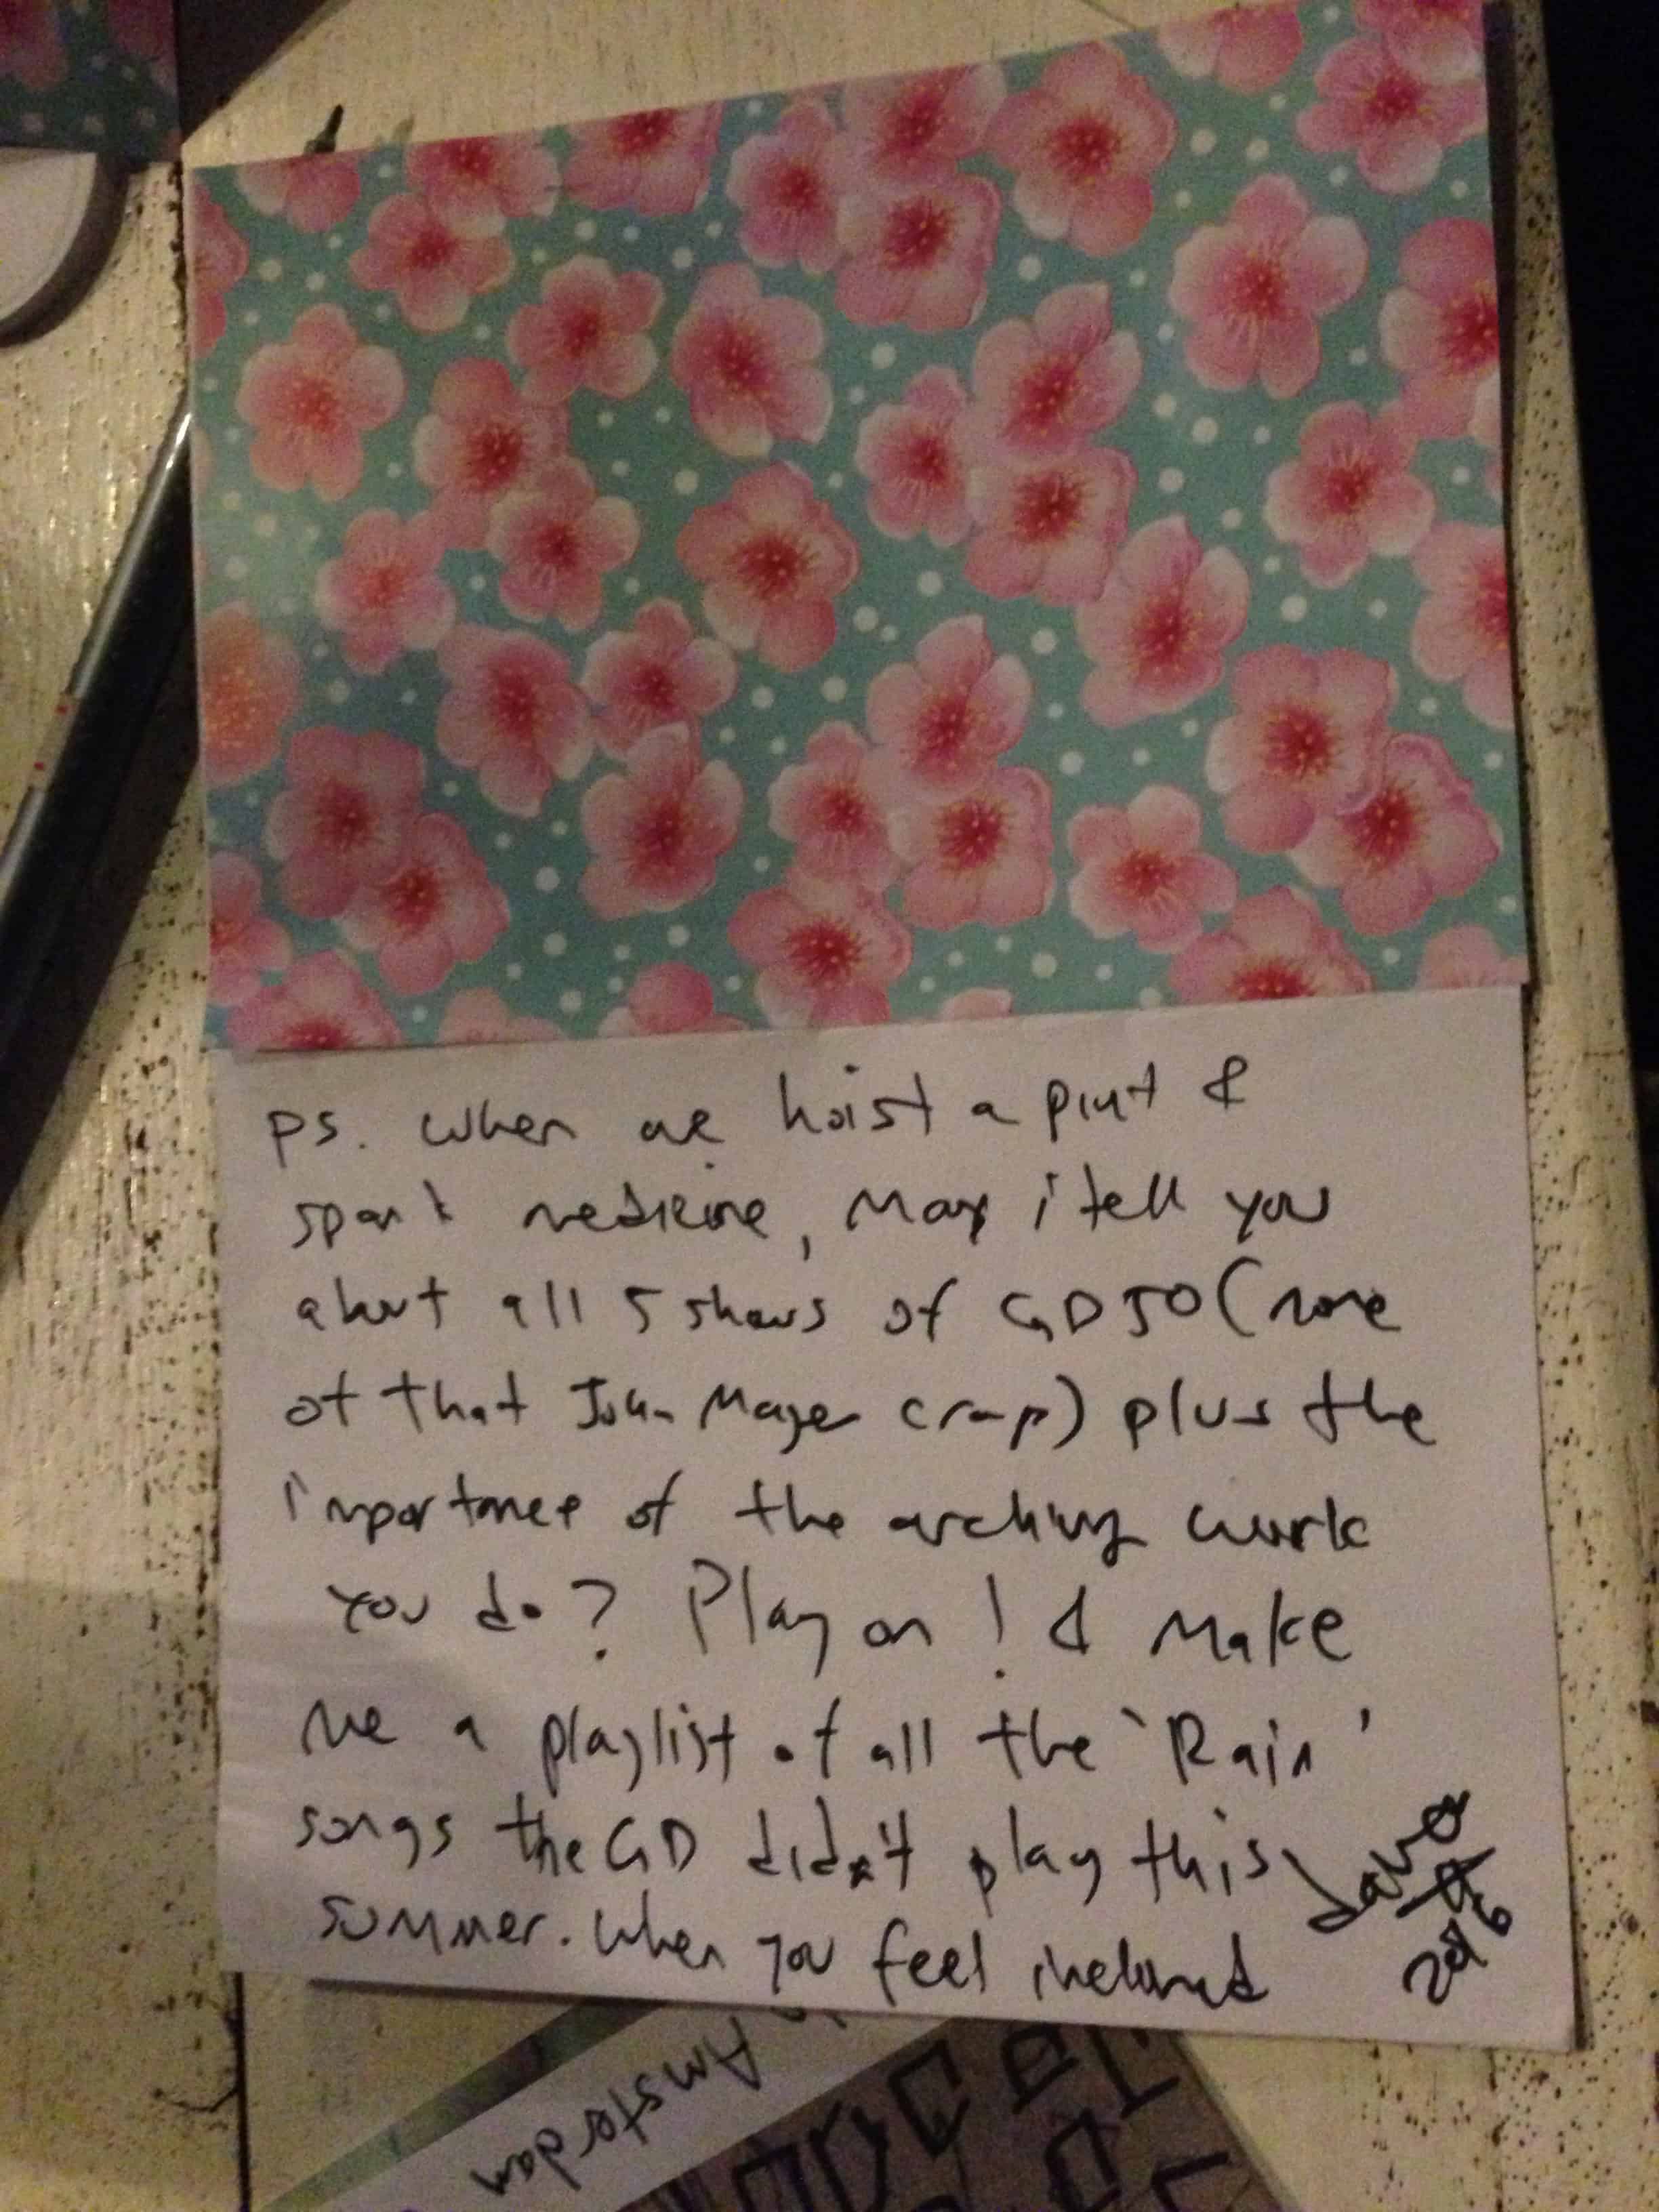 PS. when we hoist a pint &
medicine, May i tell you
about all 5 shows of GD50 (none
of that John Mayer crap) plus the
importance of the archiving work
you do? Play on! & Make
me a playlist of all the 'Rain'
songs the GD didn't play this
summer. When you feel inclined
Dave
2016
Amsterdam